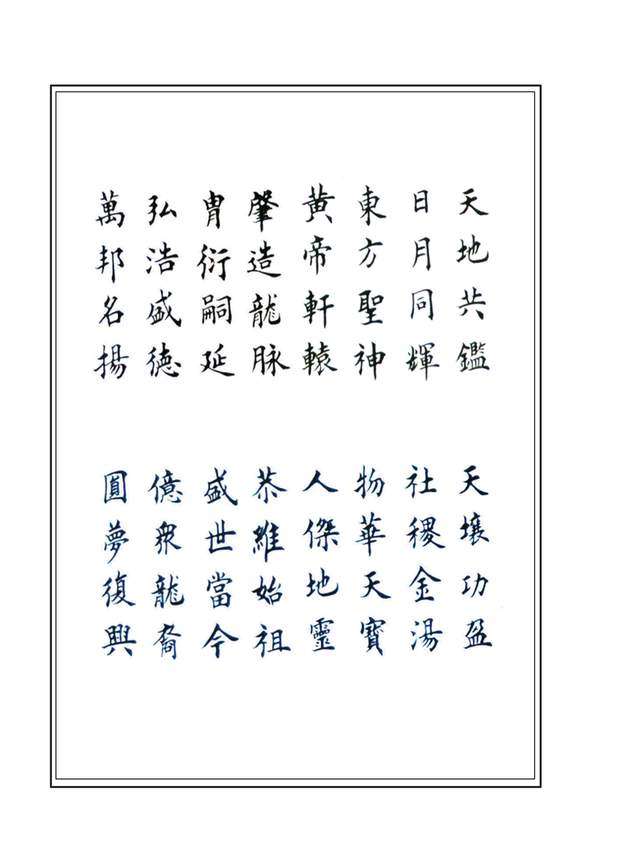 天地共鑑
日月同輝
東方聖神
黃帝軒轅
肇造龍脉
胄衍嗣延
弘浩盛德
萬邦名揚
天壤功盈
社稷金湯
物華天寶
人傑地靈
恭維始祖
盛世當今
億衆龍裔
圓夢復興